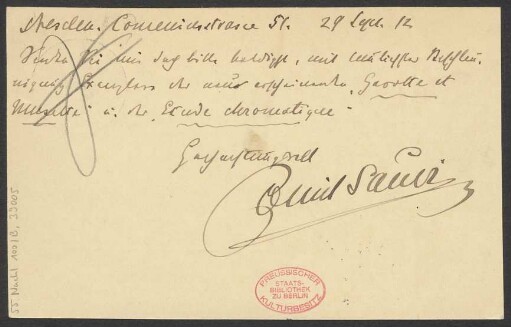 Dresden. Comeniusstrasse 51. 29 Sept. 12
Senden Sie mir doch bitte baldigst, mit
Exemplare der neu erscheinenden Gavotte et
Musette u. der Etude chromatique.
Hochachtungsvoll
Emil Sauer
PREUSSISCHER
STAATS-
BIBLIOTHEK
ZU BERLIN
KULTURBESITZ
55 Nachl 100/B,